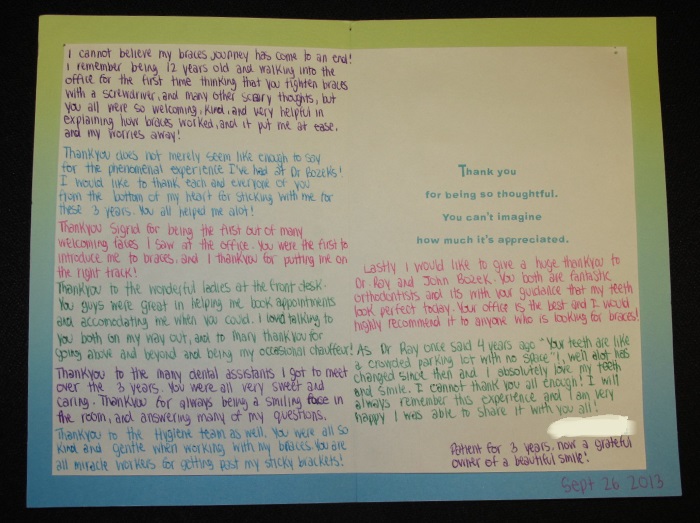 I cannot believe my braces journey has come to an end!
I remember being 12 years old and walking into the
office for the first time thinking that you tighten braces
with a screwdriver, and many other scary thoughts, but
you all were so welcoming, kind, and very helpful in
explaining how braces worked, and it put me at ease,
and my worries away!
Thankyou does not merely seem like enough to say
for the phenomenal experience I've had at Dr Bozeks!
I would like to thank each and everyone of you
from the bottom of my heart for sticking with me for
these 3 years. You all helped me alot!
Thankyou Sigrid for being the first out of many
welcoming faces I saw at the office. You were the first to
introduce me to braces, and I thankyou for putting me on
the right track!
Thankyou to the wonderful ladies at the front desk.
You guys were great in helping me book appointments
and accomodating me when you could. I loved talking to
you both on my way out, and to Mary thankyou for
going above and beyond and being my occasional chauffeur!
Thankyou to the many dental assistants I got to meet
over the 3 years. You were all very sweet and
caring. Thankyou for always being a smiling face in
the room, and answering many of my questions.
Thankyou to the Hygiene team as well. You were all so
kind and gentle when working with my braces. You are
all miracle workers for getting past my sticky brackets!
Thank you
for being so thoughtful.
You can't imagine
how much it's appreciated.
Lastly I would like to give a huge thankyou to
Dr Ray and John Bozek. You both are fantastic
orthodontists and its with your guidance that my teeth
look perfect today. Your office is the best and I would
highly recommend it to anyone who is looking for braces!
As Dr Ray once said 4 years ago "Your teeth are like
a crowded parking lot with no space"!, well alot has
changed since then and I absolutely love my teeth
and smile. I cannot thank you all enough! I will
always remember this experience and I am very
happy I was able to share it with you all!
Patient for 3 years, now a grateful
owner of a beautiful smile!
Sept 26 2013